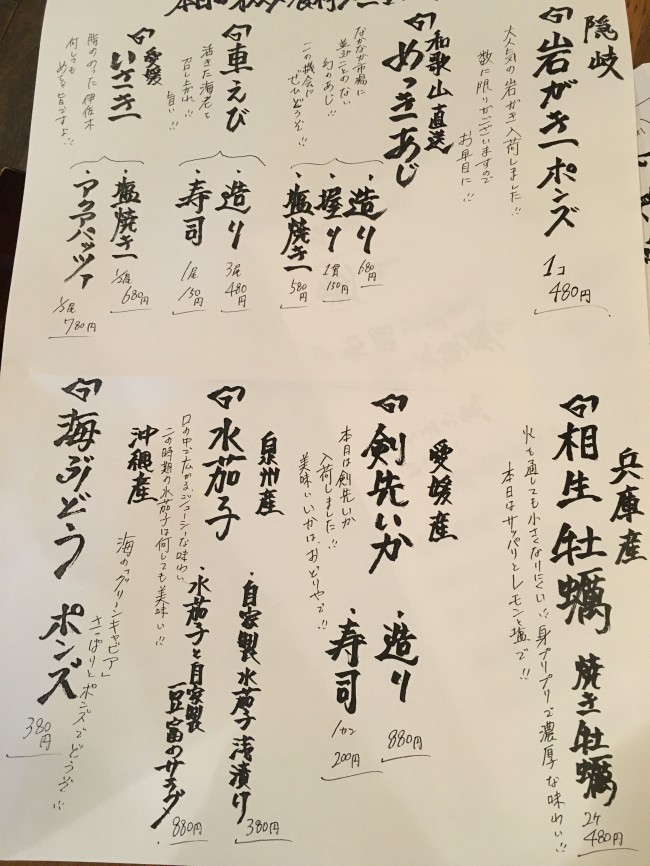 隠岐
岩がきポンズ
1コ
480円
大人気の岩かき入荷しました!!
数に限りがございますので
お早目に!!
和歌山直送
めっきあじ
なかなか市場に
並ぶことのない
幻のあじ!!
この機会に
ぜひどうぞ!!
・造り
680円
・握り
1貫
150円
・塩焼き
580円
車えび
活きた海老を
召し上がれ!!
旨い!!
・造り
3尾
480円
・寿司
1尾
150円
愛媛
いさき
脂ののった伊佐木
何しても
めちゃ旨ですよ!!
・塩焼き
1/2尾
680円
・アクアパッツァ
1/2尾
780円
兵庫産
相生牡蠣 焼き牡蠣
2ケ
480円
火を通しても小さくなりにくい!!身プリプリで濃厚な味わい!!
本日はサッパリとレモンと塩で!!
愛媛産
剣先いか
本日は剣先いか
入荷しました!!
美味いいかは、おどりやで!!
・造り
880円
・寿司
1カン
200円
泉州産
水茄子
口の中で広がるジューシーな味わい
この時期の水茄子は何しても美味い!!
・自家製水茄子浅漬け
380円
・水茄子と自家製
豆富のサラダ
880円
沖縄産
海ぶどう ポンズ
海の「グリーンキャビア」
さっぱりとポンズでどうぞ!!
380円